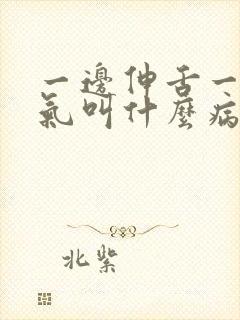 一邊伸舌一
氣叫什麼病
北紫